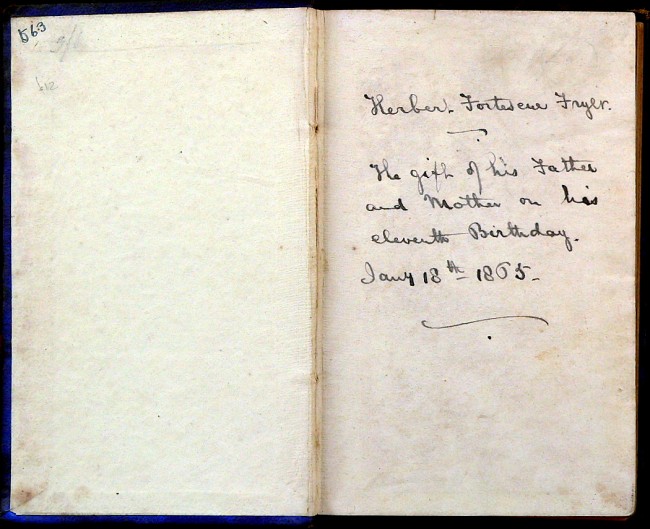 563
Herbert Fortescue Fryer.
The gift of his Father
and Mother on his
eleventh Birthday.
Jany 18th 1865.